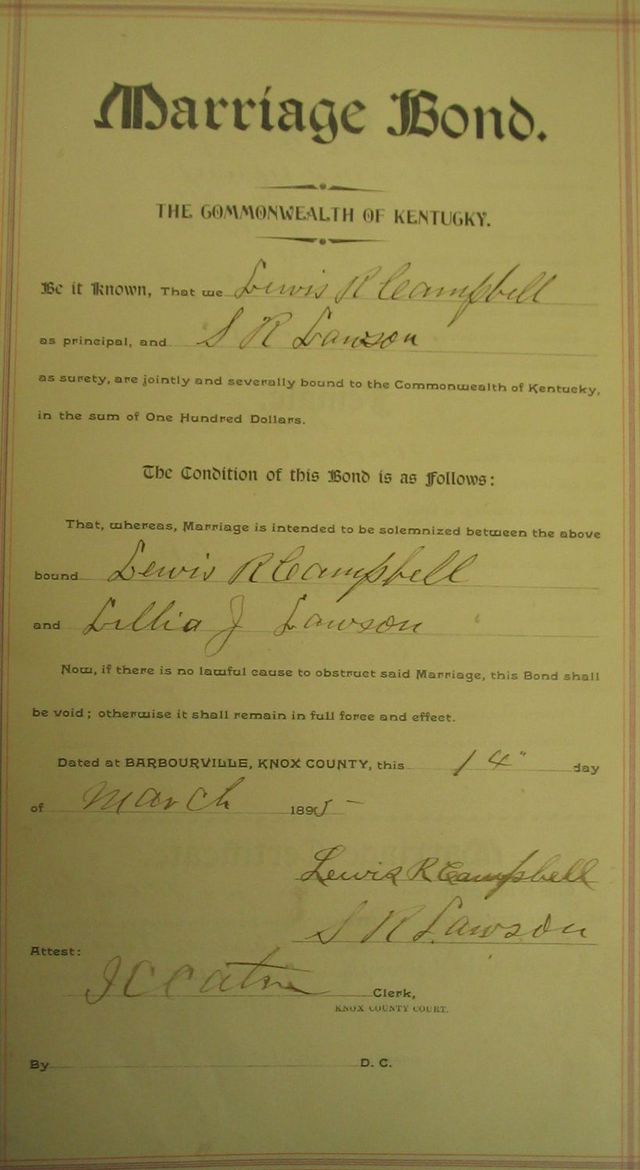 Marriage Bond.
THE COMMONWEALTH OF KENTUCKY.
Be it Known, That we Lewis R Campbell
as principal, and S R Lawson
as surety, are jointly and severally bound to the Commonwealth of Kentucky,
in the sum of One Hundred Dollars.
The Condition of this Bond is as Follows:
That, whereas, Marriage is intended to be solemnized between the above
bound Lewis R Campbell
and Lillia J Lawson
Now, if there is no lawful cause to obstruct said Marriage, this Bond shall
be void; otherwise it shall remain in full force and effect.
Dated at BARBOURVILLE, KNOX COUNTY, this 14" day
of March 1895-
Lewis R Campbell
S R Lawson
Attest:
Clerk,
KNOX COUNTY COURT.
By D. C.